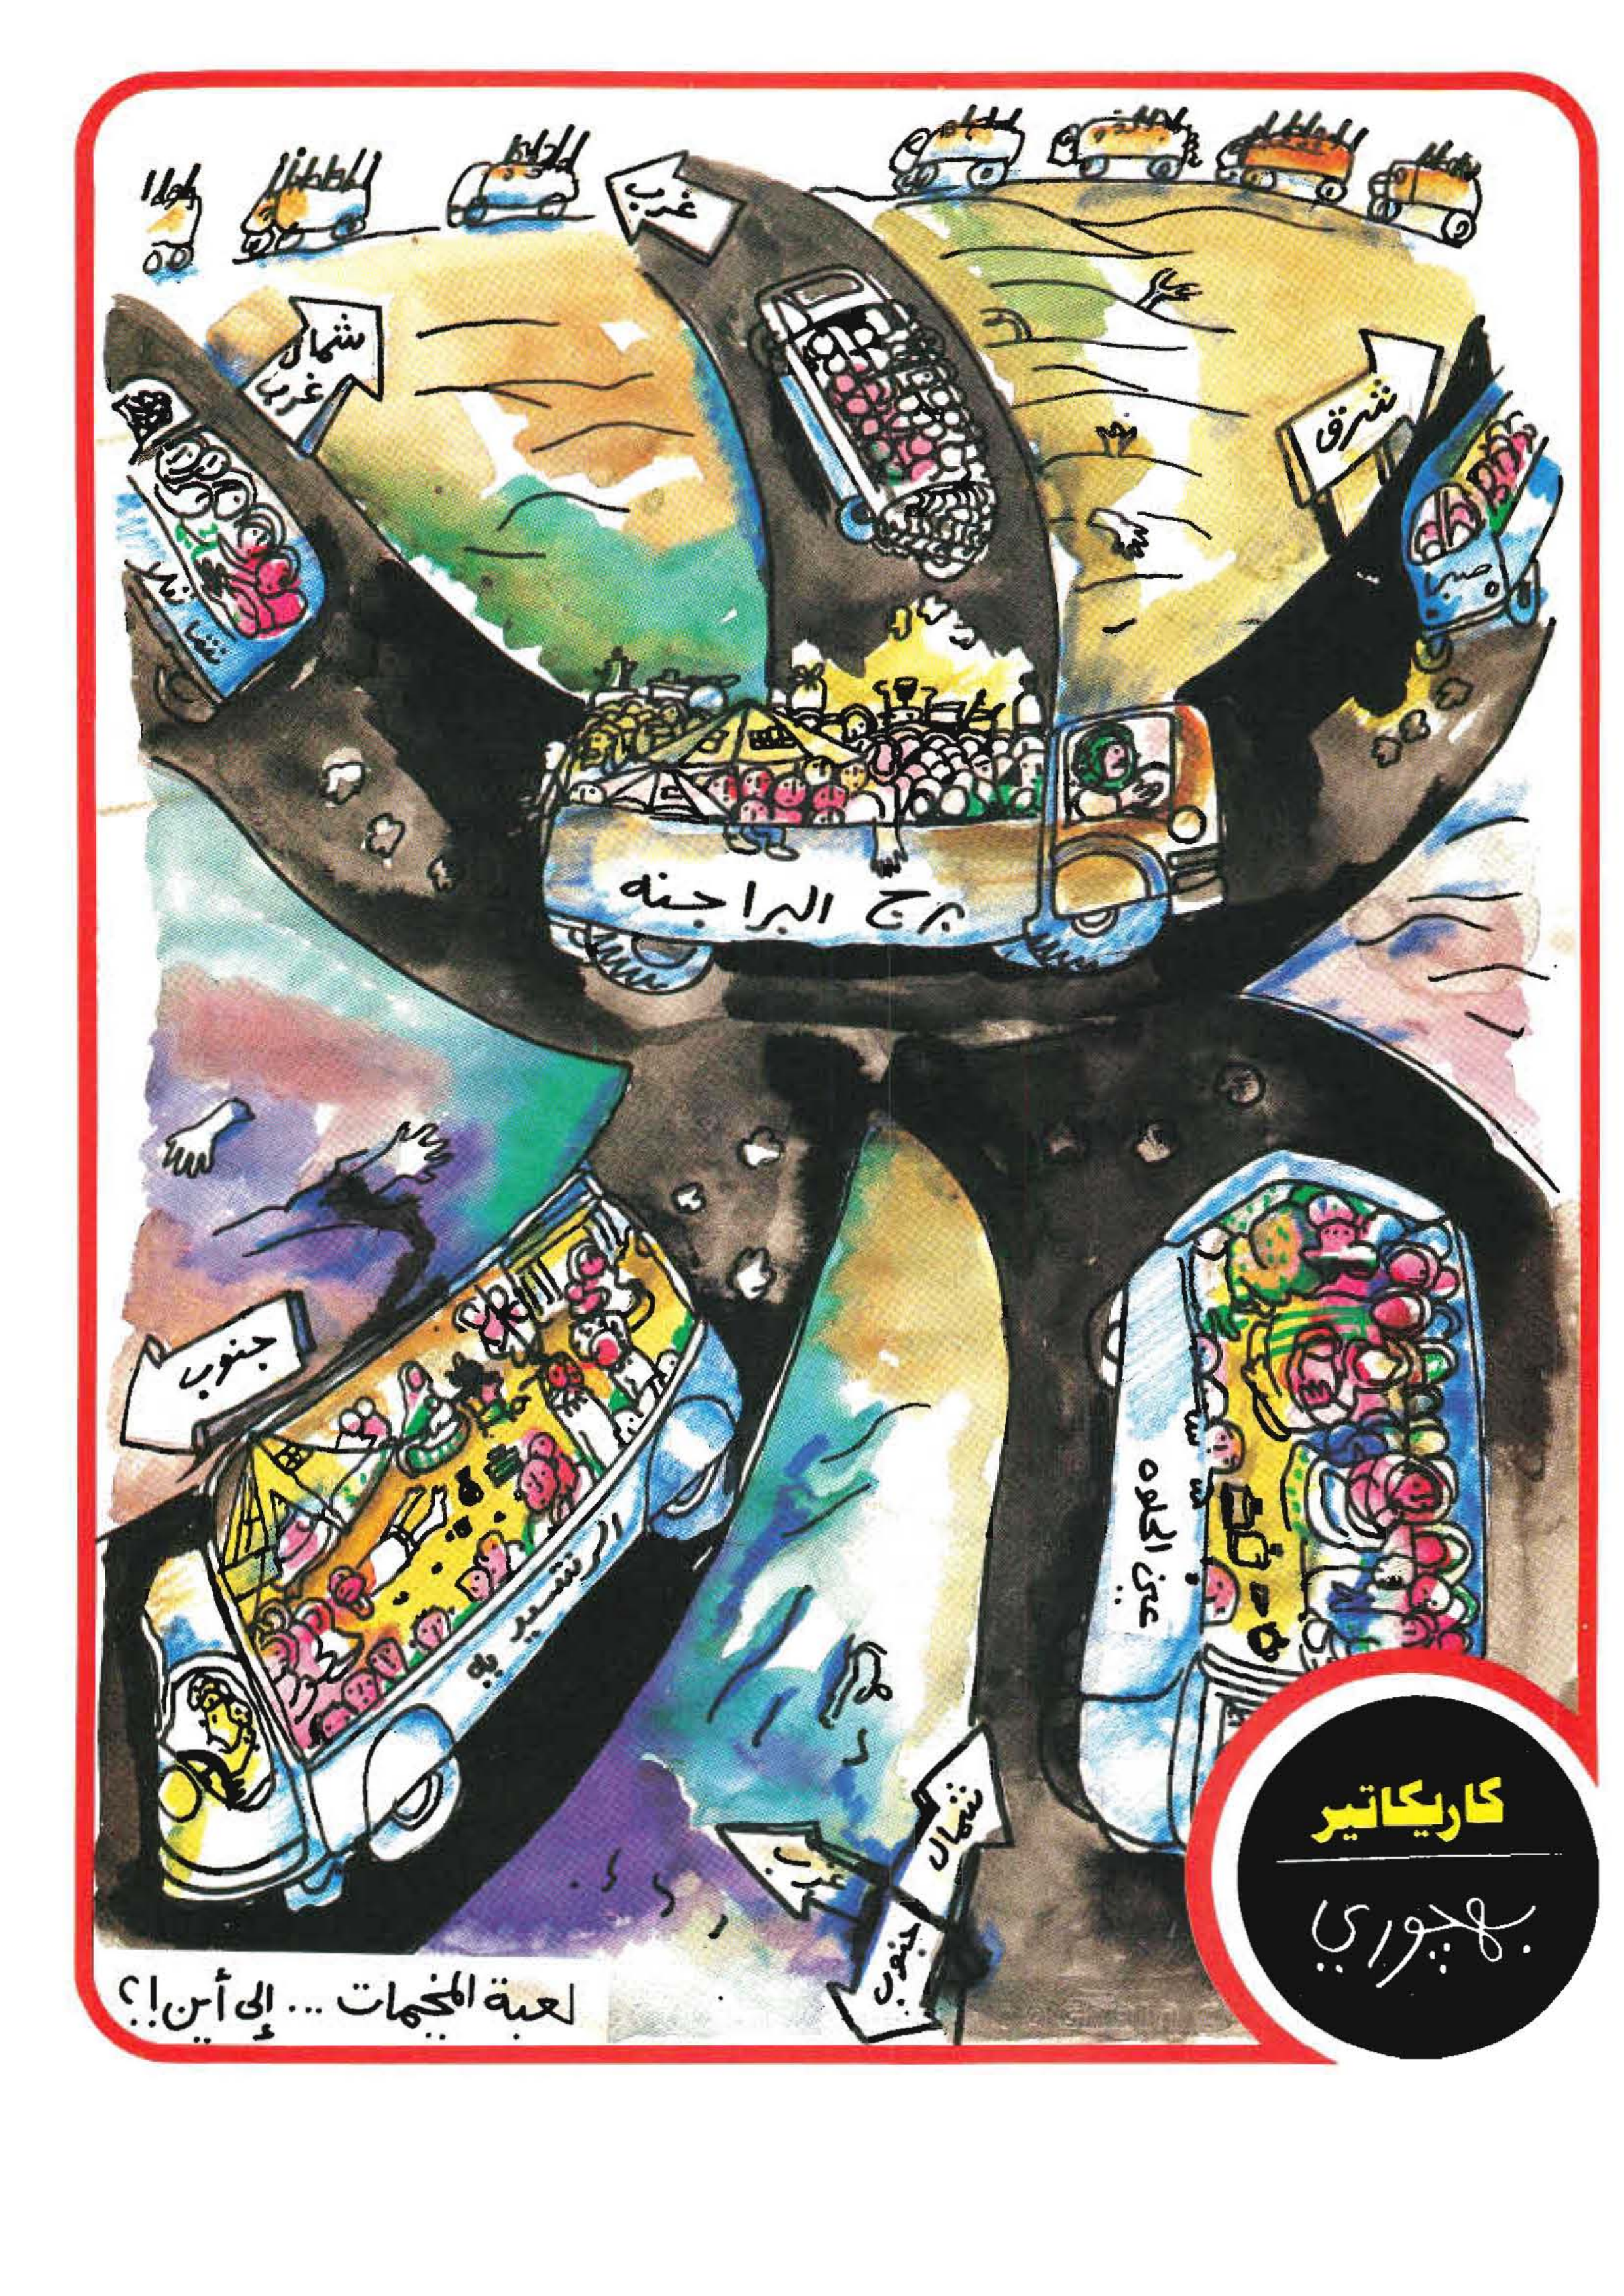 غرب
شمال
غرب
شرق
صبرا
برج البراجنه
جنوب
الرشيديه
عين الحلوه
شمال
غرب
جنوب
لعبة المخيمات ... إلى أين!؟
كاريكاتير
بهجوري